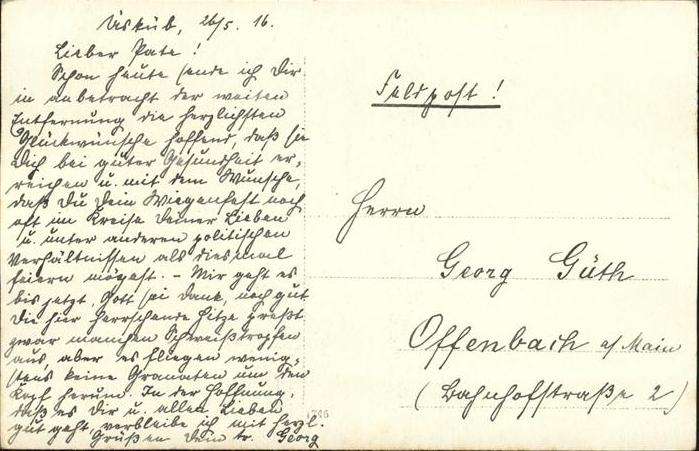 Üsküb, 26/5. 16.
Lieber Pate!
Schon heute sende ich Dir
in anbetracht der weiten
Entfernung die herzlichsten
Glückwünsche hoffend, daß sie
Dich bei guter Gesundheit er-
reichen u. mit dem Wunsche,
daß Du Dein Wiegenfest noch
oft im Kreise Deiner Lieben
u. unter anderen politischen
Verhältnissen als diesmal
feiern mögest. – Mir geht es
bis jetzt, Gott sei Dank, noch gut
Die hier herrschende Hitze preßt
zwar manchen Schweißtropfen
aus, aber es fliegen wenig-
stens keine Granaten um den
Kopf herum. In der Hoffnung,
daß es Dir u. allen Lieben
gut geht, verbleibe ich mit herzl.
Grüßen Dein tr. Georg
Feldpost!
Herrn
Georg Güth
Offenbach a/Main
(Bahnhofstraße 2)